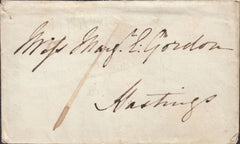 Miss Mary. E. Gordon
Hastings